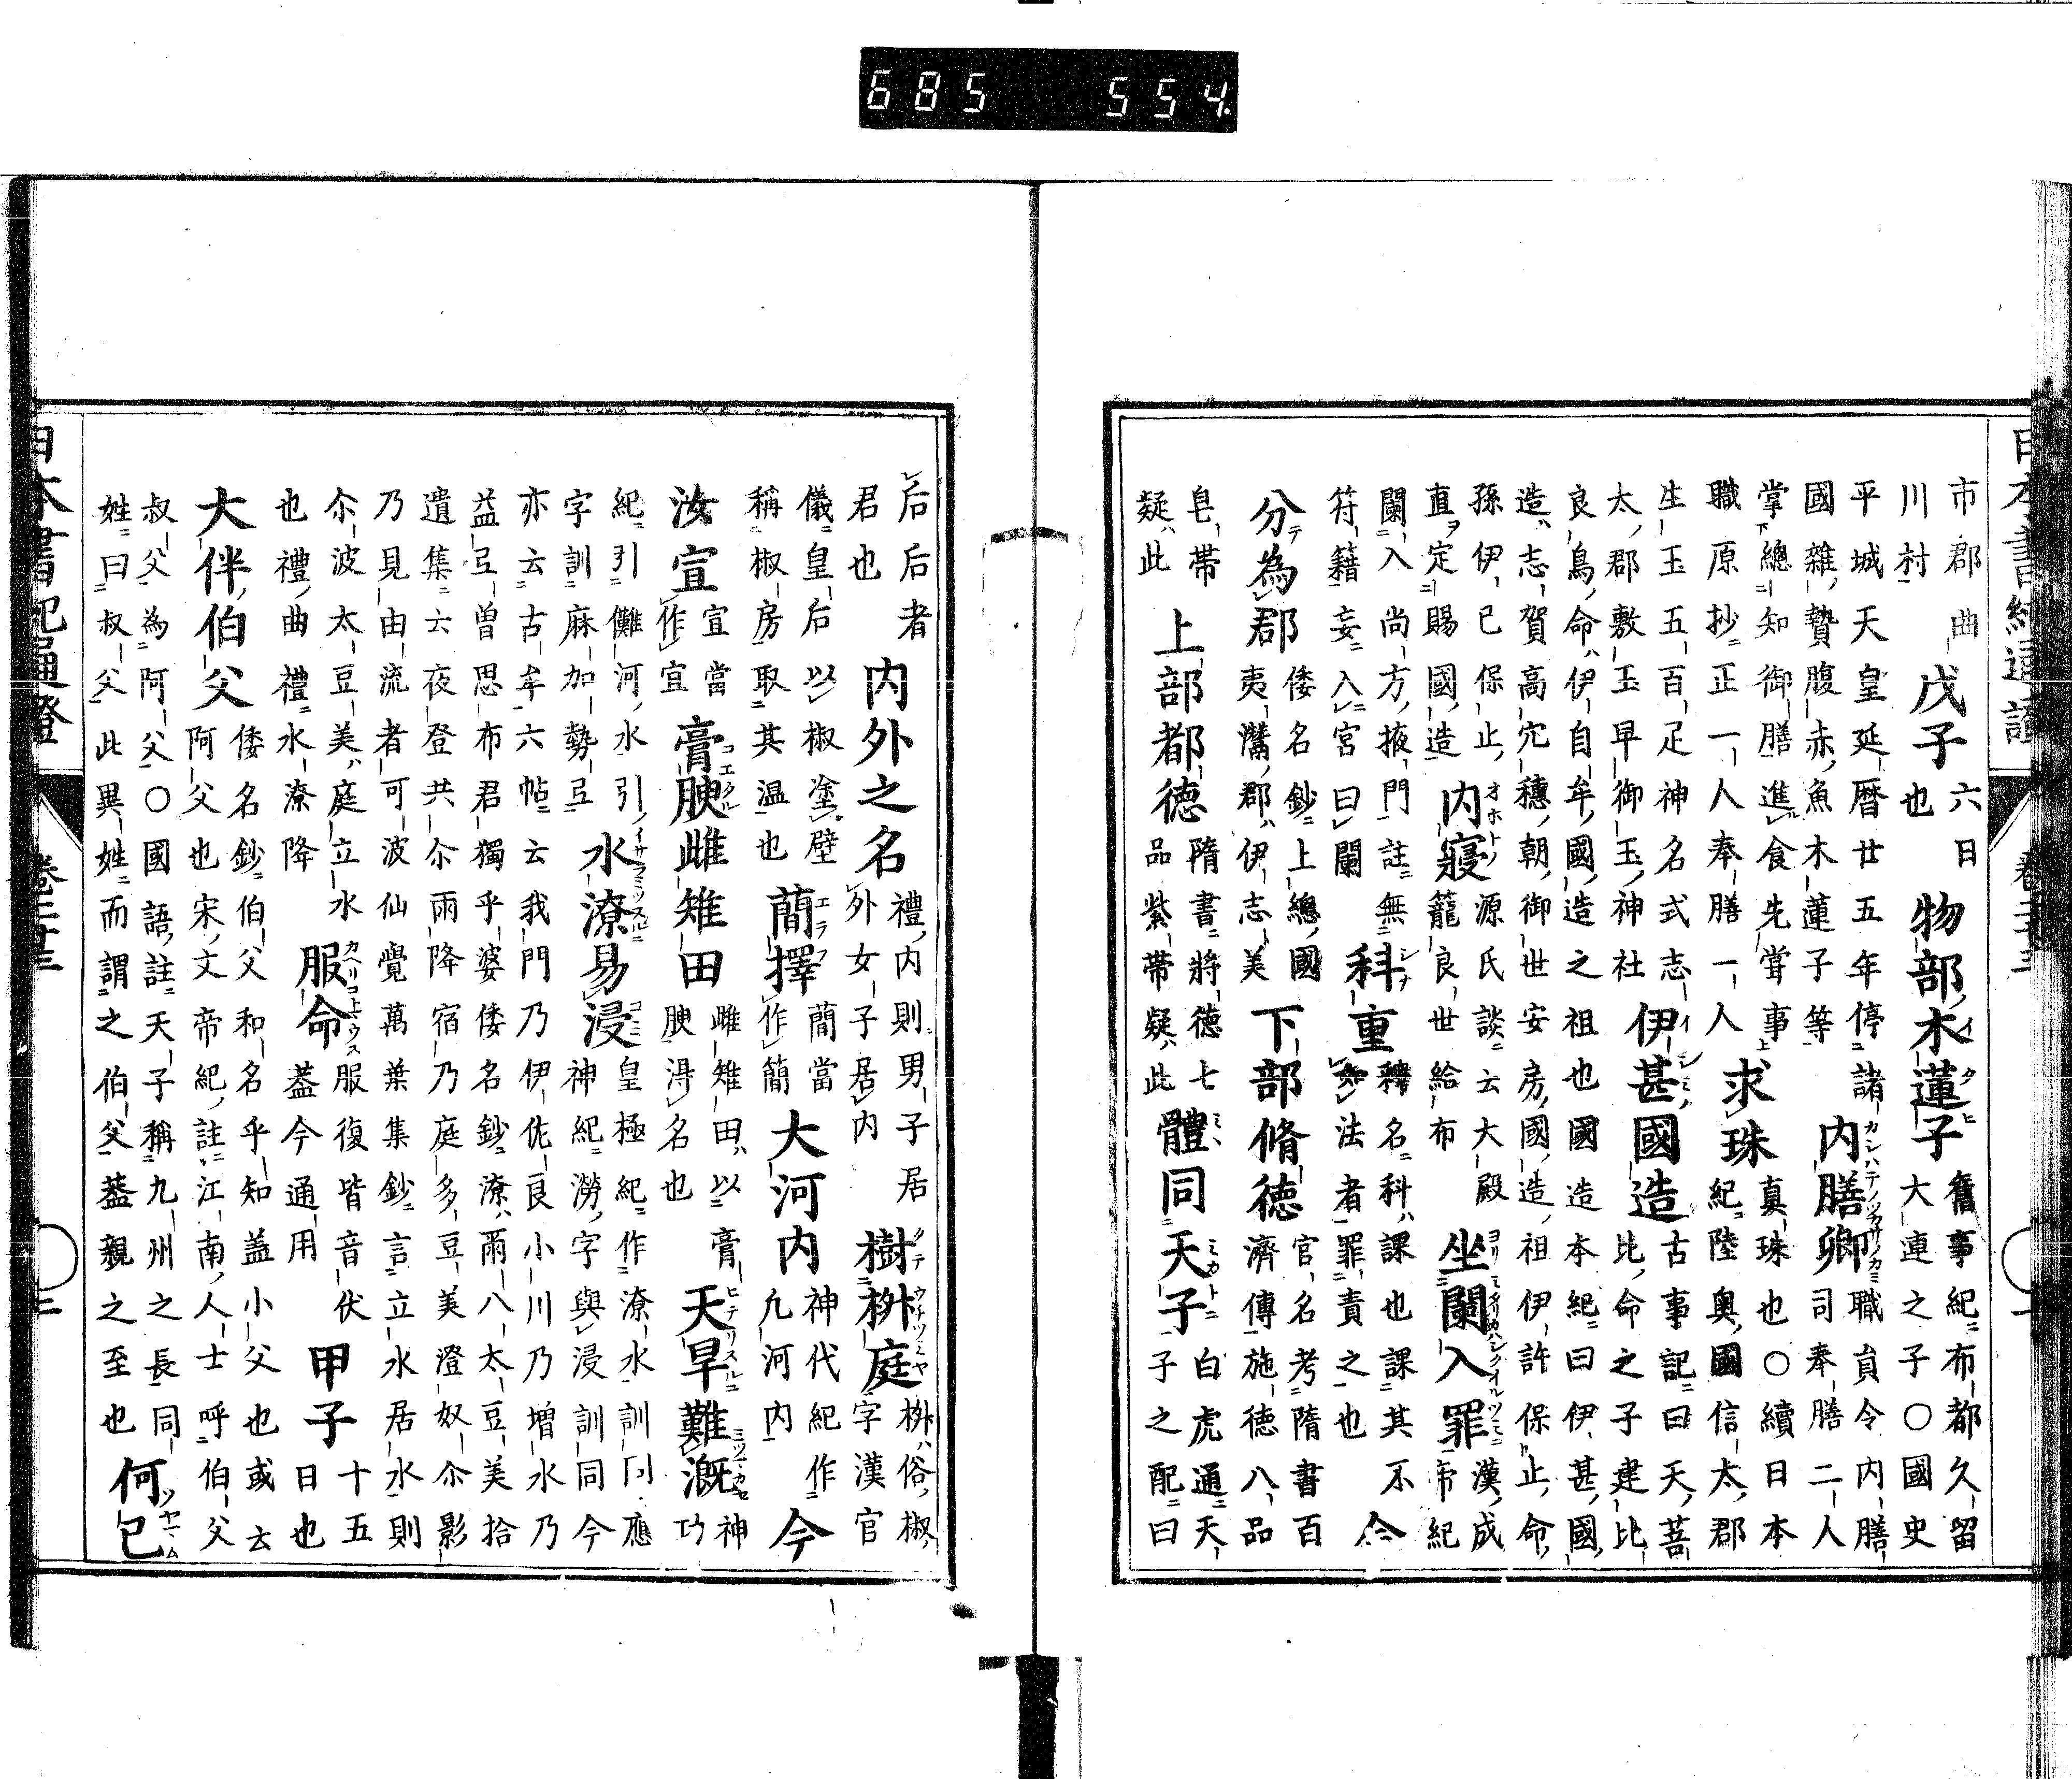 市郡曲川村 戊子六日也 物部木蓮子舊事紀布都久留大連之子○國史
平城天皇延暦廿五年停諸國雜贄腹赤魚木蓮子等 内膳卿職員令内膳司奉膳二人
掌總知御膳進食先甞事職原抄正一人奉膳一人 求珠真珠也○續日本紀陸奥國信太郡
生玉五百足神名式志太郡敷玉早御玉神社 伊甚國造古事記曰天菩比命之子建比
良鳥命伊自牟國造之祖也國造本紀曰伊甚國造志賀高穴穗朝御世安房國造祖伊許保止命
孫伊己保止直定賜國造 内寢源氏談云大殿籠良世給布 坐闌入罪漢成帝紀
闌入尚方掖門註無符籍妄入宮曰闌 科重釋名科課也課其不如法者罪責之也 今
分為郡倭名鈔上總國夷灊郡伊志美 下部脩徳官名考隋書百濟傳施徳八品
皂帶疑此 上部都徳隋書將徳七品紫帶疑此 體同天子白虎通天子之配曰
后后者君也 内外之名禮内則男子居外女子居内 樹椒庭椒俗椒字漢官
儀皇后以椒塗壁稱椒房取其温也 蕳擇蕳當作簡 大河内神代紀作凡河内 今
汝宣宣當作宜 膏腴雌雉田雌雉田以膏腴得名也 天旱難漑神功
紀引儺河水引字訓麻加勢弖 水潦易浸皇極紀作潦水訓同應神紀澇字與浸訓同今
亦云古今六帖云我門乃伊佐良小川乃増水乃益弖曽思布君獨乎婆倭名鈔潦雨八太豆美拾
遺集云夜登共尒雨降宿乃庭多豆美澄奴尒影乃見由流者可波仙覺萬葉集鈔言立水居水則
尒波太豆美庭立水也禮曲禮水潦降 服命服復皆音伏葢今通用 甲子十五日也
大伴伯父倭名鈔伯父和名乎知盖小父也或云阿父也宋文帝紀註江南人士呼伯父
叔父為阿父○國語註天子稱九州之長同姓曰叔父此異姓而謂之伯父葢親之至也 何已
685 554